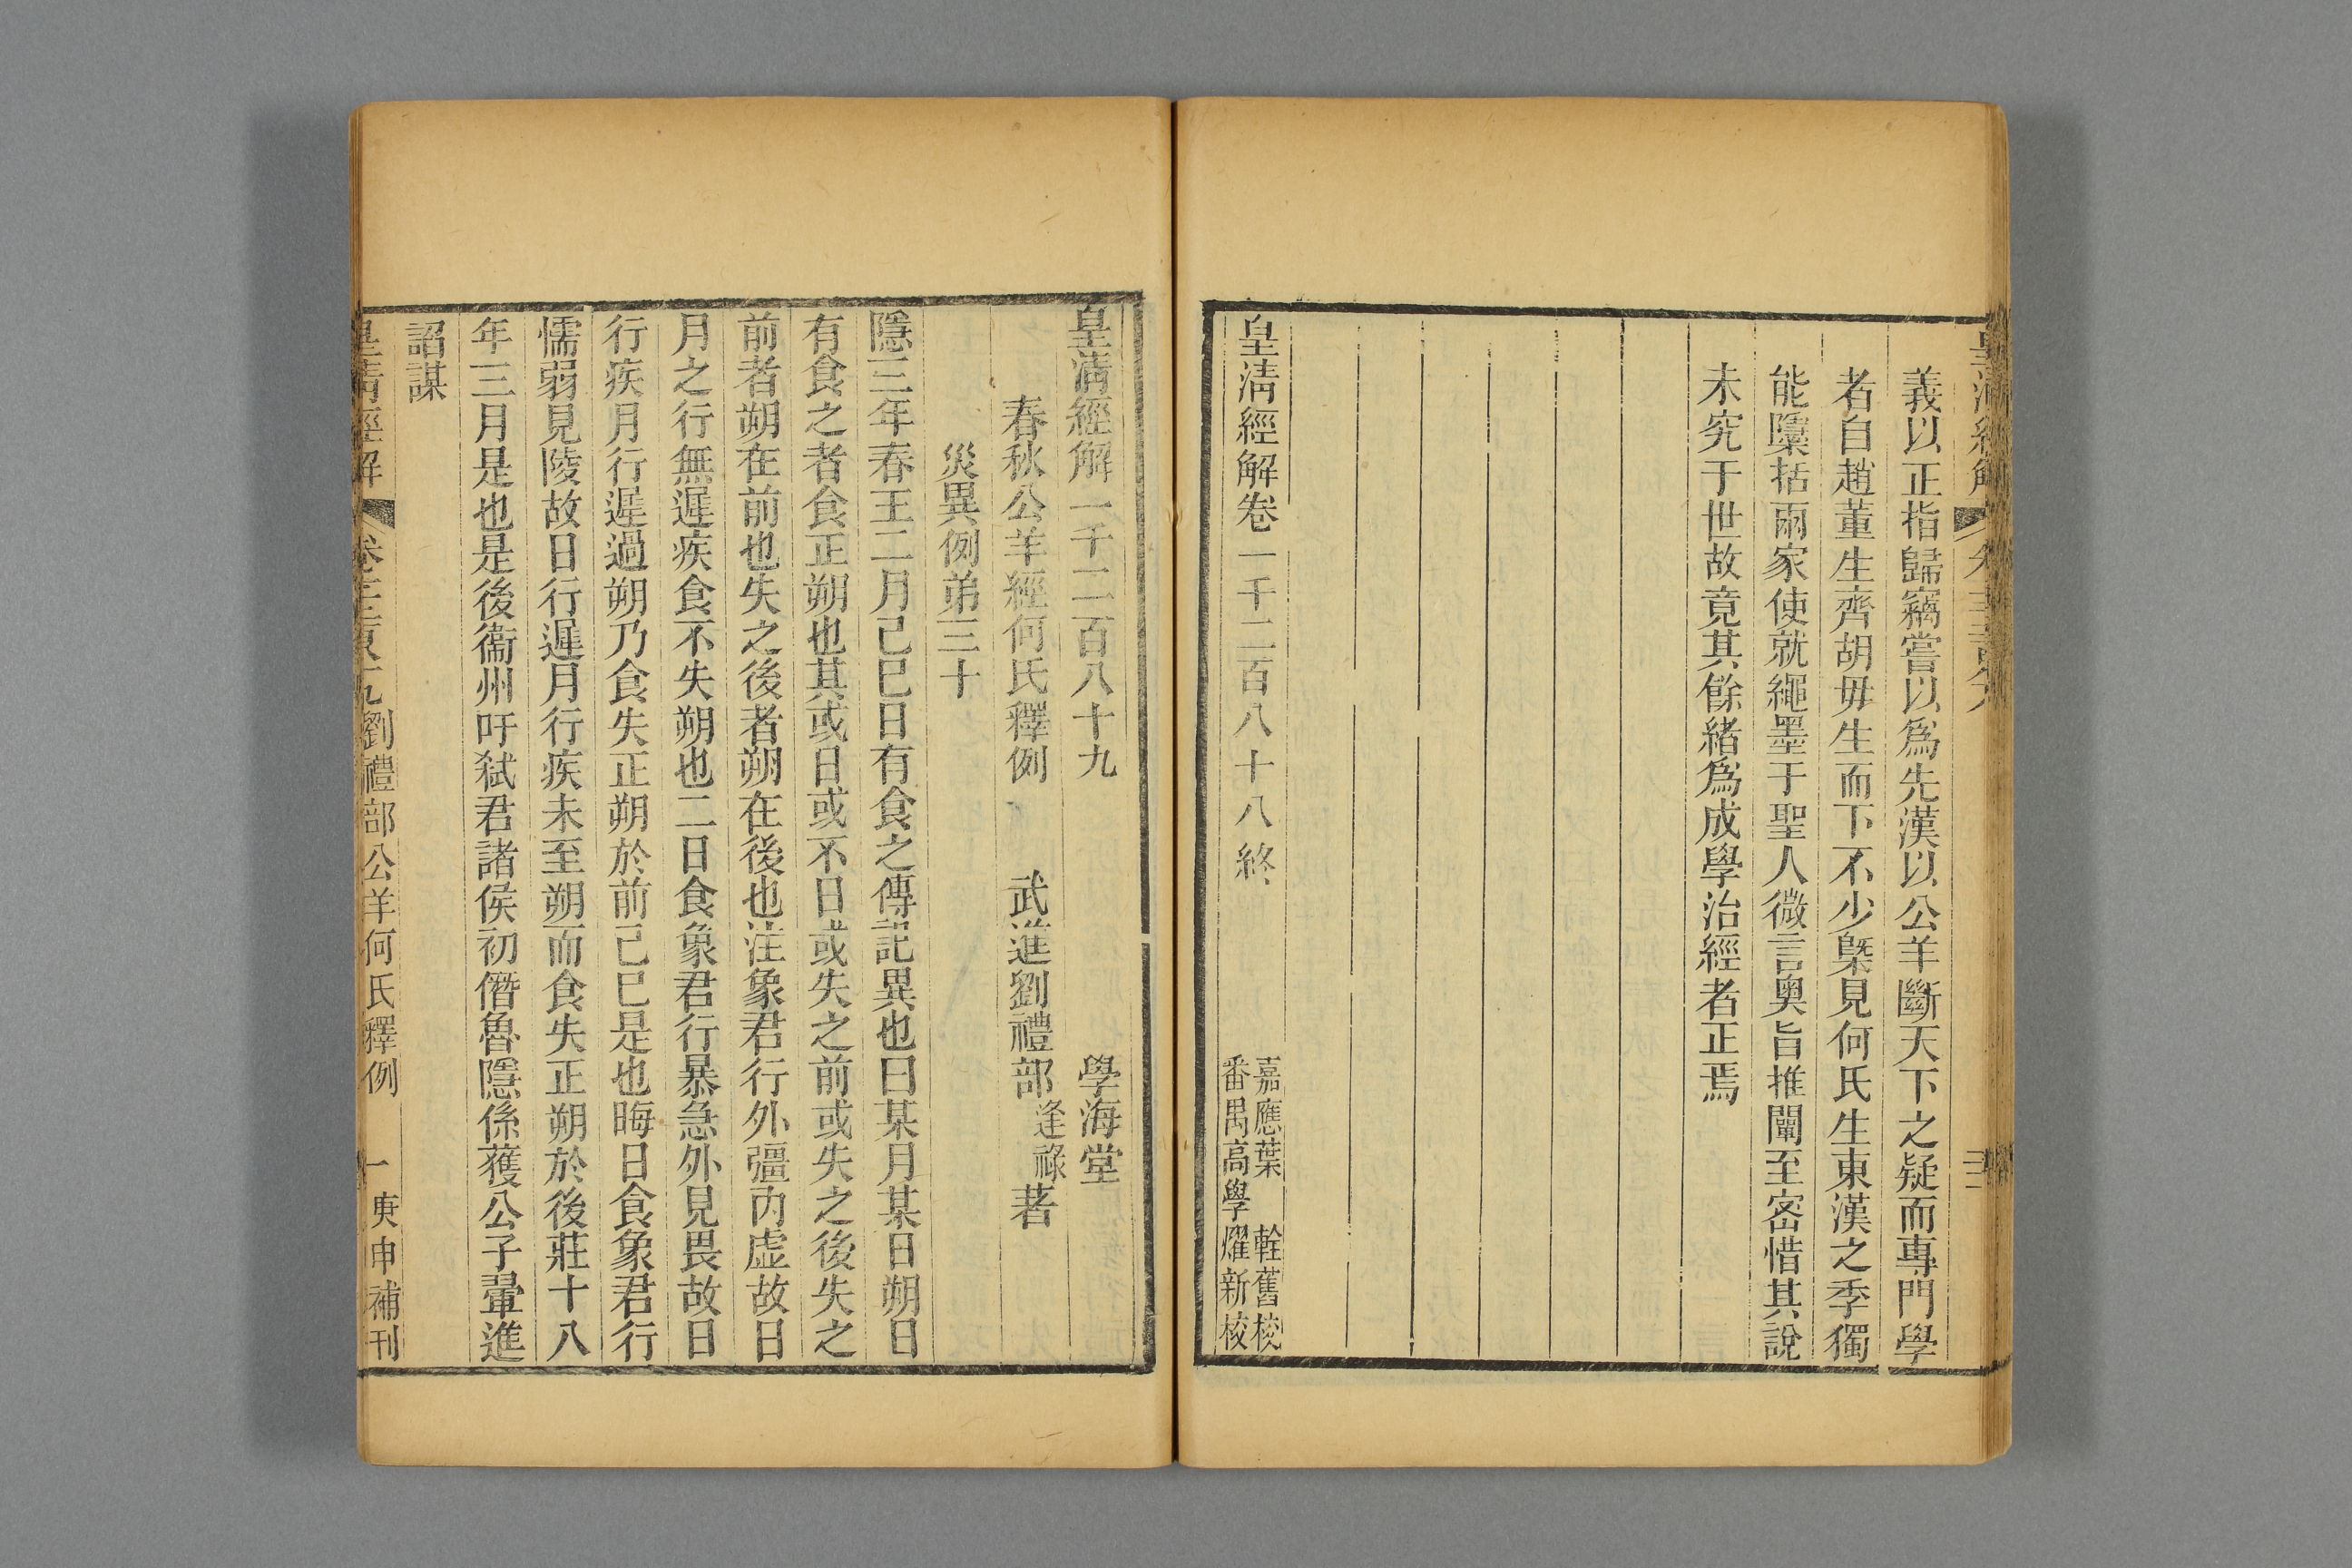 義以正指歸竊嘗以爲先漢以公羊斷天下之疑而專門學
者自趙董生齊胡毋生而下不少槩見何氏生東漢之季獨
能隱括兩家使就繩墨于聖人微言奧旨推闡至密惜其說
未究于世故竟其餘緒爲成學治經者正焉
皇淸經解卷一千二百八十八終
嘉應葉軽舊校
番禺高學燿新校
皇淸經解一千二百八十九
學海堂
春秋公羊經何氏釋例
武進劉禮部逢祿著
災異例弟三十
隱三年春王二月己巳日有食之傳記異也曰某月某日朔日
有食之者食正朔也其或日或不日或失之前或失之後失之
前者朔在前也失之後者朔在後也注象君行外彊內虛故日
月之行無遲疾食不失朔也二日食象君行暴急外見畏故日
行疾月行遲過朔乃食失正朔於前己巳是也晦日食象君行
懦弱見陵故日行遲月行疾未至朔而食失正朔於後莊十八
年三月是也是後衞州吁弑君諸侯初僭魯隱係獲公子翬進
諂謀
劉禮部公羊何氏釋例
一
庚申補刊